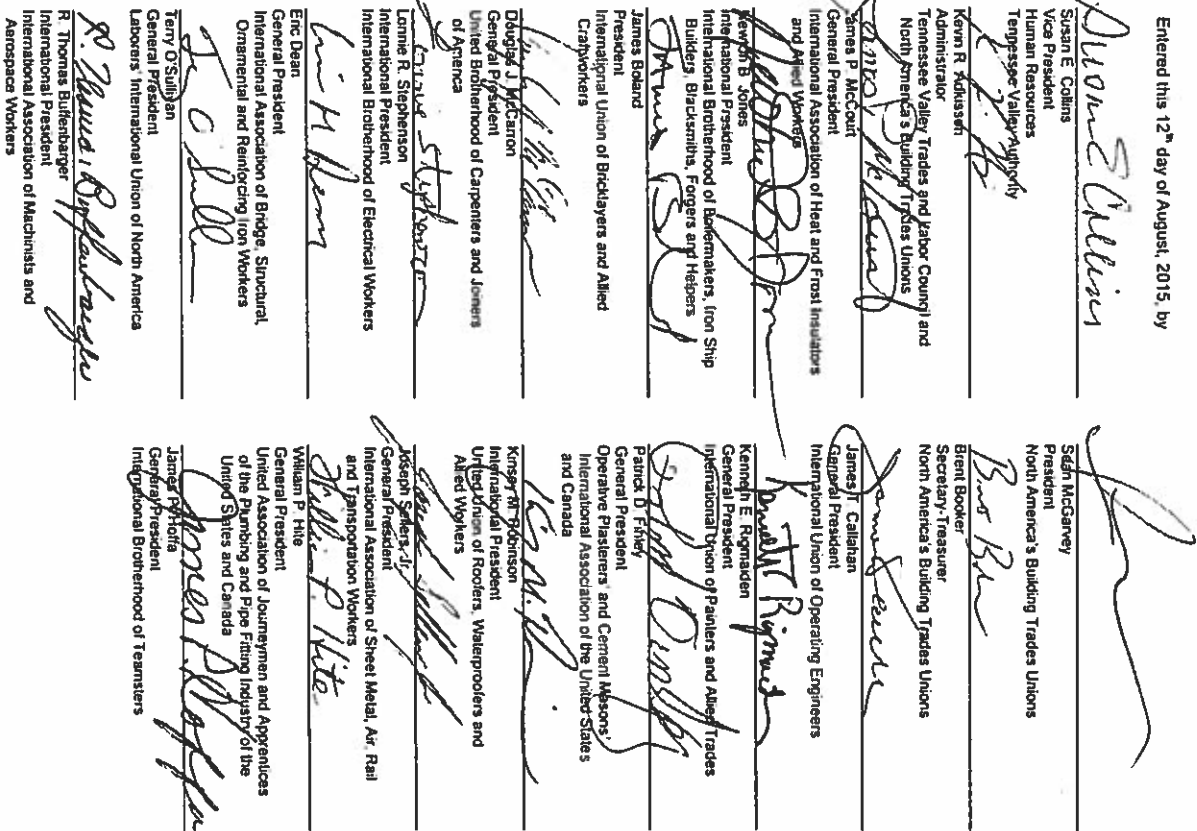 Entered this 12th day of August, 2015, by
Susan E. Collins
Susan E. Collins
Vice President
Human Resources
Tennessee Valley Authority
Kevin R. Adkisson
Administrator
Tennessee Valley Trades and Labor Council and
North America's Building Trades Unions
James P. McCourt
James P. McCourt
General President
International Association of Heat and Frost Insulators
and Allied Workers
Newton B. Jones
Newton B. Jones
International President
International Brotherhood of Boilermakers, Iron Ship
Builders, Blacksmiths, Forgers and Helpers
James Boland
James Boland
President
International Union of Bricklayers and Allied
Craftworkers
Douglas J. McCarron
General President
United Brotherhood of Carpenters and Joiners
of America
Lonnie Stephenson
Lonnie R. Stephenson
International President
International Brotherhood of Electrical Workers
Eric M Dean
Eric Dean
General President
International Association of Bridge, Structural,
Ornamental and Reinforcing Iron Workers
Terry O'Sullivan
General President
Laborers' International Union of North America
R. Thomas Buffenbarger
R. Thomas Buffenbarger
International President
International Association of Machinists and
Aerospace Workers
Sean McGarvey
President
North America's Building Trades Unions
Brent Booker
Secretary-Treasurer
North America's Building Trades Unions
James T. Callahan
General President
International Union of Operating Engineers
Kenneth Rigmaiden
Kenneth E. Rigmaiden
General President
International Union of Painters and Allied Trades
Patrick D. Finley
General President
Operative Plasterers' and Cement Masons'
International Association of the United States
and Canada
Kinsey M. Robinson
International President
United Union of Roofers, Waterproofers and
Allied Workers
Joseph Sellers, Jr.
General President
International Association of Sheet Metal, Air, Rail
and Transportation Workers
William P. Hite
William P. Hite
General President
United Association of Journeymen and Apprentices
of the Plumbing and Pipe Fitting Industry of the
United States and Canada
James P. Hoffa
James P. Hoffa
General President
International Brotherhood of Teamsters